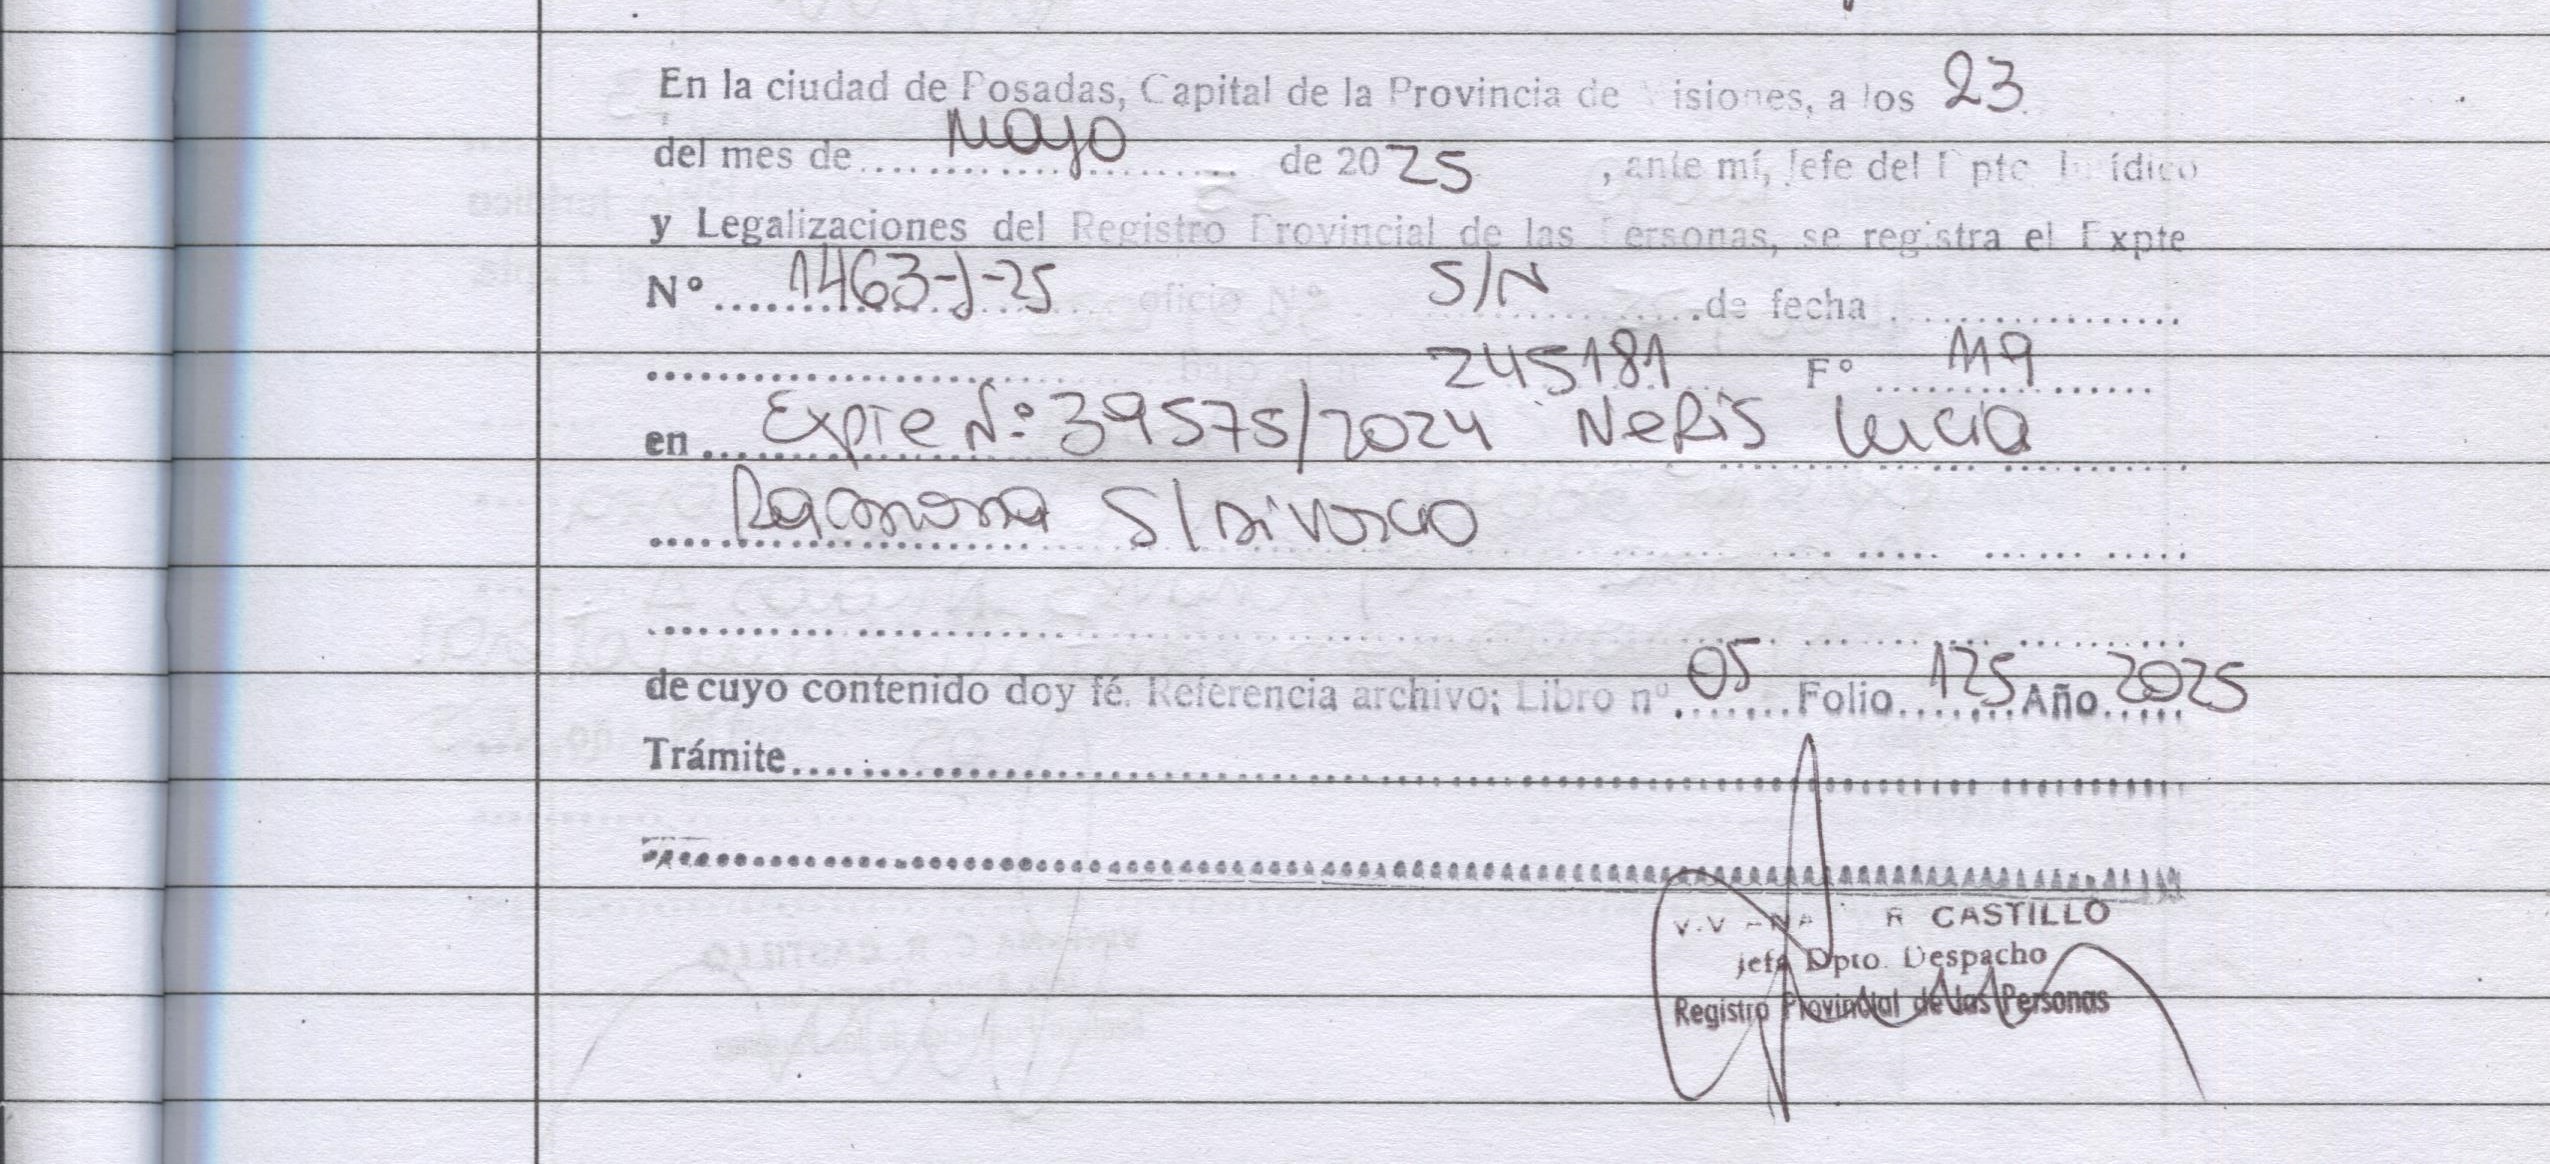 En la ciudad de Posadas, Capital de la Provincia de Misiones, a los 23
del mes de Mayo de 2025, ante mí, Jefe del Dpto Jurídico
y Legalizaciones del Registro Provincial de las Personas, se registra el Expte
N° 1463-J-25 oficio N° S/N de fecha
245181 F° 119
en Expte N°: 39575/2024 Neris Lucia
Ramona S/Divorcio
de cuyo contenido doy fé. Referencia archivo; Libro n° 05 Folio 125 Año 2025
Trámite
CASTILLO
Jefe Dpto. Despacho
Registro Provincial de las Personas